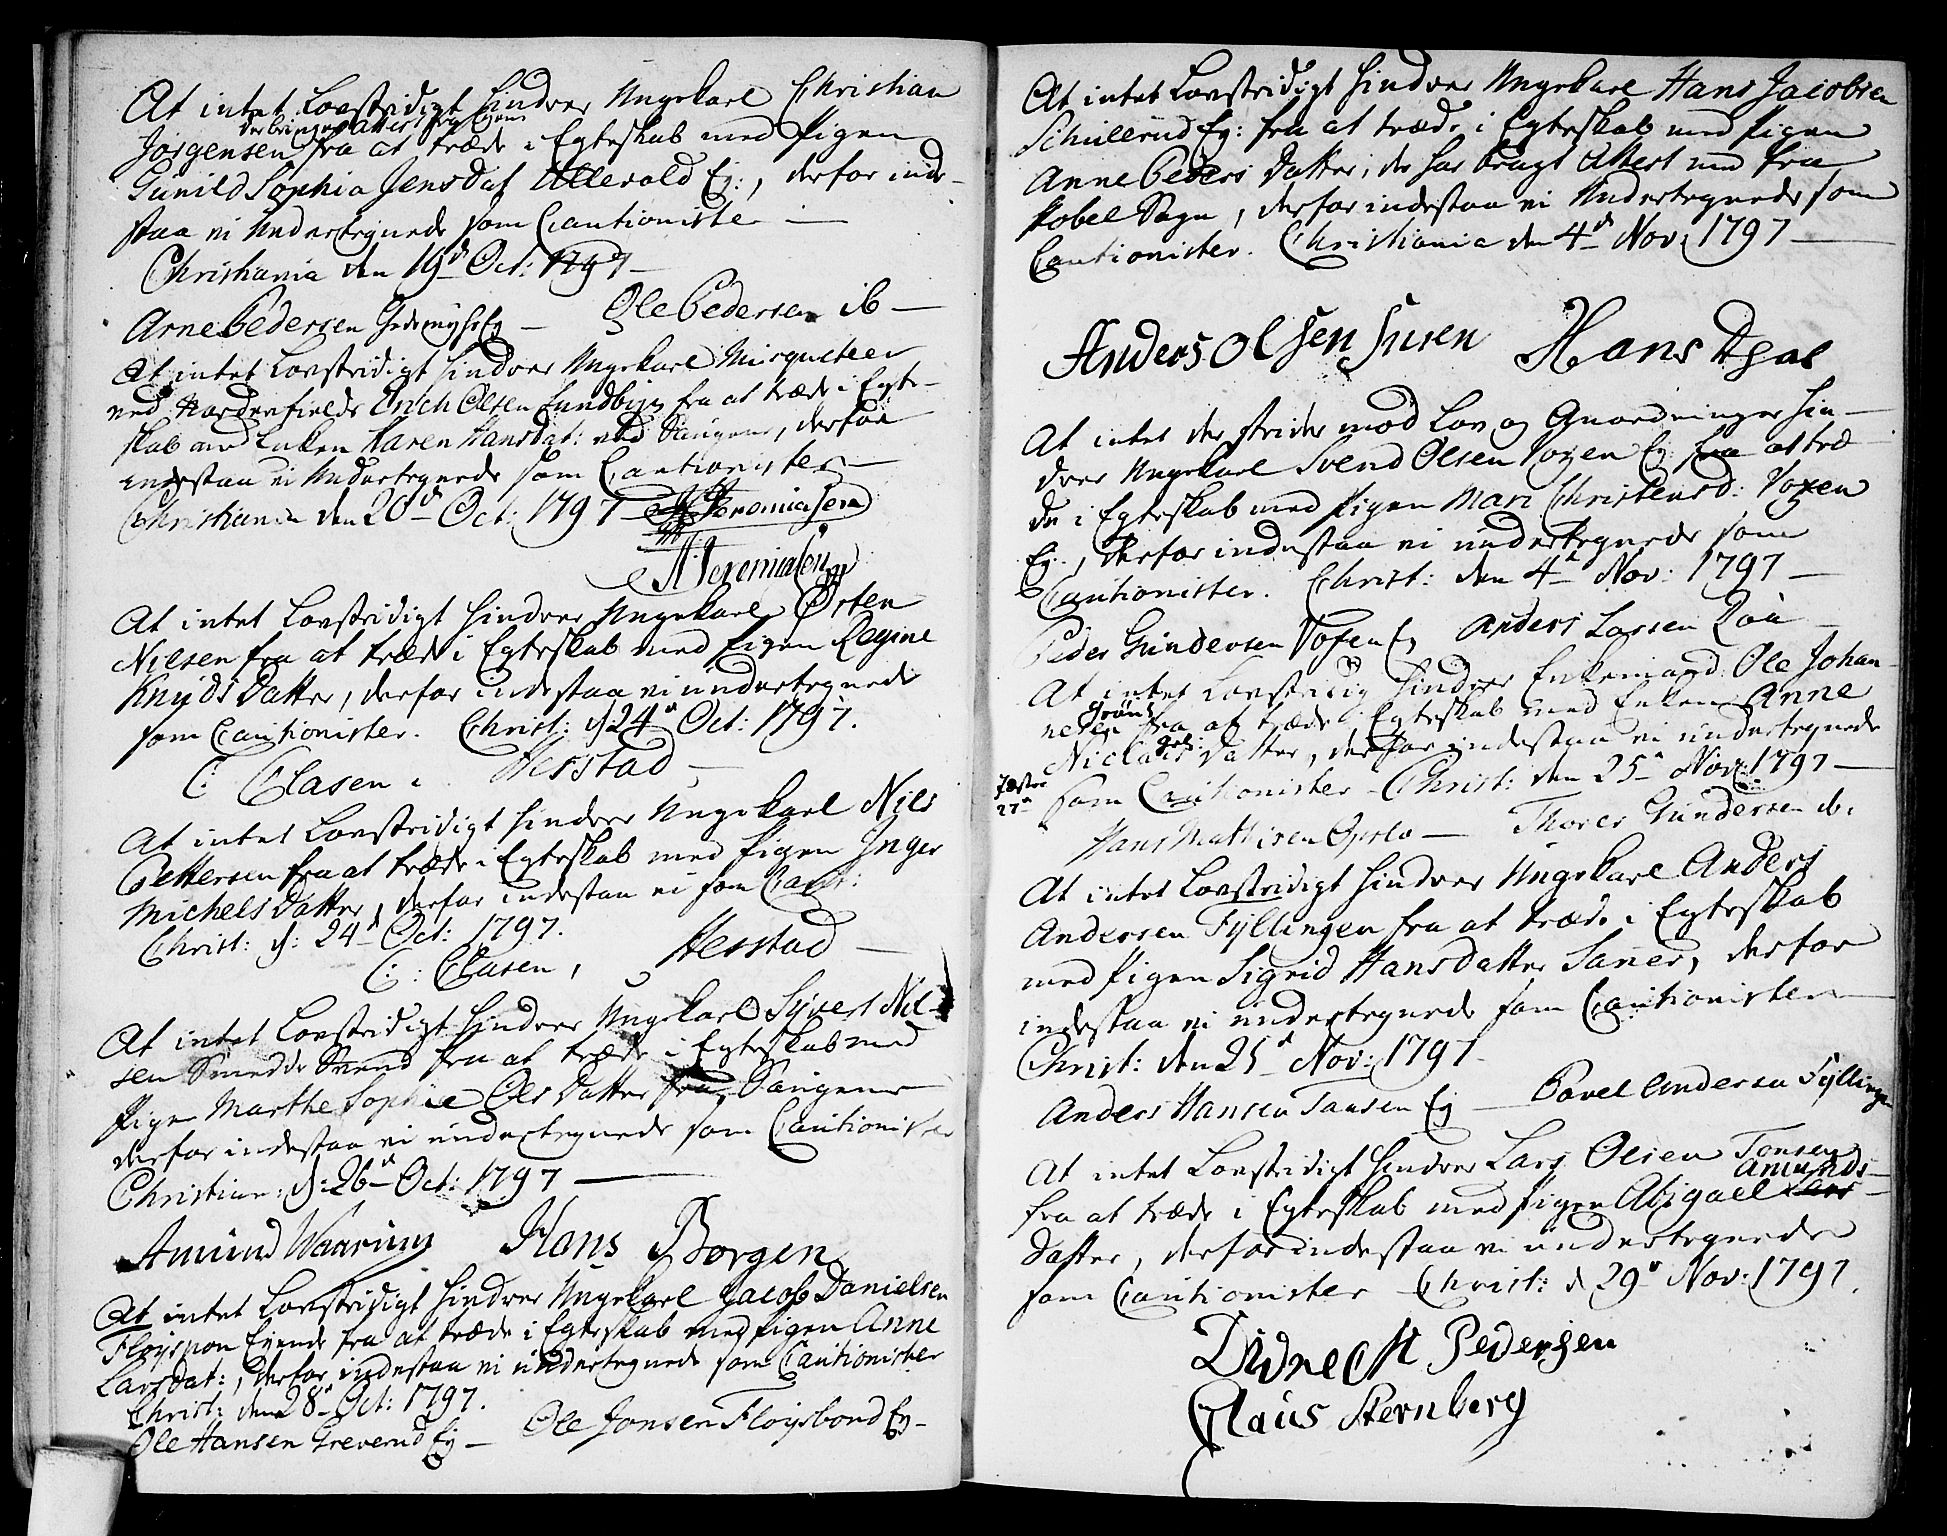 At intet Lovstridigt hindrer Ungekarl Christian
der bringer Attest fra Egnen
Jörgensen fra at træde i Egteskab med Pigen
Gunild Sophia JensDat Ullevold Eg:, derfor inde-
staa vi Undertegnede som Cautionister —
Christiania den 19d Oct: 1797 —
Arne Pedersen Eg — Ole Pedersen ib —
At intet Lovstridigt hindrer Ungekarl Musqueteer
ved Nordenfields Erich Olsen Lundbye fra at træde i Egte-
skab med Enken Karen Hansdat: ved Saugene, derfor
indestaa vi Undertegnede som Cautionister —
Christiania den 20d Oct: 1797 — Jeremiasen
Jeremiasen
At intet Lovstridigt hindrer Ungekarl Østen
Nielsen fra at træde i Egteskab med Pigen Regine
Knuds Datter, derfor indestaa vi undertegnede
som Cautionister. Christ: d 24d Oct: 1797.
C: Clasen. Herstad —
At intet Lovstridigt hindrer Ungekarl Niels
Pettersen fra at træde i Egteskab med Pigen Inger
Michels Datter, derfor indestaa vi som Caut:
Christ: d: 24d Oct: 1797.
C: Clasen, Herstad —
At intet Lovstridigt hindrer Ungekarl Syvert Niel-
sen Smedde Svend fra at træde i Egteskab med
Pigen Marthe Sophie Ols Datter fra Saugene
derfor indestaa vi undertegnede som Cautionister
Christian: d: 26d Oct: 1797 —
Amund Waaring Hans Borgen
At intet Lovstridigt hindrer Ungekarl Jacob Danielsen
Floyspon Eyende fra at træde i Egteskab med Pigen Anne
Larsdat:, derfor indestaa vi undertegnede som Cautionister
Christ: den 28d Oct: 1797.
Ole Hansen Greverud Eg — Ole Jonsen Floysbond Eg —
At intet Lovstridigt hindrer Ungekarl Hans Jacobsen
Schullerud Eg: fra at træde i Egteskab med Pigen
Anne Peders Datter, der har bragt Attest med fra
Skobel Sogn, derfor indestaa vi Undertegnede som
Cautionister. Christiania den 4d Nov: 1797 —
Anders Olsen Hans Dhal
At intet der strider mod Lov og Anordninger hin-
drer Ungekarl Svend Olsen Voxen Eg: fra at træ-
de i Egteskab med Pigen Mari Christensd: Voxen
Eg:, derfor indestaa vi undertegnede som
Cautionister. Christ: den 4d Nov: 1797 —
Peder Gundersen Voxen Eg Anders Larsen Roa —
At intet Lovstridig hindrer Enkemand Ole Johan-
Grönd
nesen fra at træde i Egteskab med Enken Anne
Niclaus Datter, derfor indestaa vi undertegnede
27d
som Cautionister Christ: den 25d Nov: 1797 —
Hans Mathisen Opslo — Thorer Gundersen ib:
At intet Lovstridigt hindrer Ungekarl Anders
Andersen Fyllingen fra at træde i Egteskab
med Pigen Sigrid Hansdatter Saner, derfor
indestaa vi undertegnede som Cautionister
Christ: den 25d Nov: 1797.
Anders Hansen Tansen Eg — Povel Andersen Fyllingen
At intet Lovstridigt hindrer Lars Olsen Tonsen
Amunds-
fra at træde i Egteskab med Pigen Abigael Lars-
Datter, derfor indestaa vi undertegnede
som Cautionister Christ: d 29d Nov: 1797.
Didrech Pedersen
Claus Sternberg